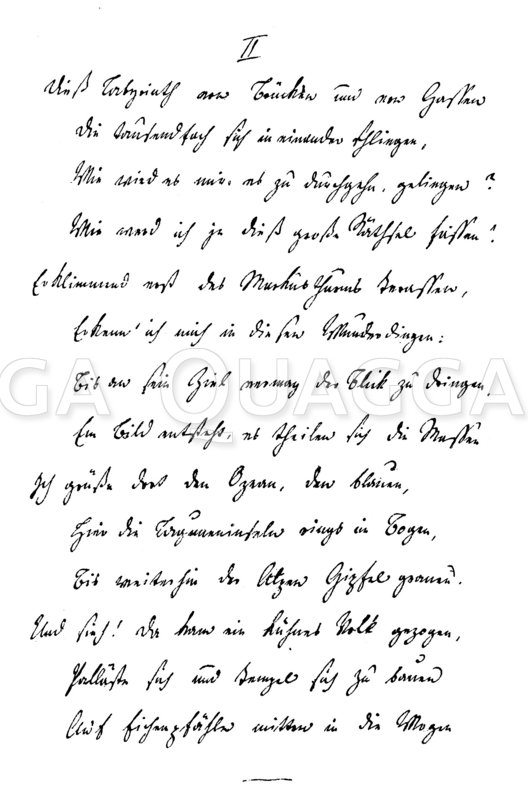 II
Dieß Labyrinth von Brücken und von Gassen
Die tausendfach sich ineinander schlingen,
Wie wird es mir, es zu durchgehn, gelingen?
Wie werd ich je dieß große Räthsel fassen?
Erklimmend erst des Markusthurms Terassen,
Erkenn' ich mich in diesen Wunderdingen:
Bis an sein Ziel vermag der Blick zu dringen,
Ein Bild entsteht, es theilen sich die Massen
Ich grüße dort den Ozean, den blauen,
Hier die Laguneninseln rings im Bogen,
Bis weiterhin der Alpen Gipfel grauen.
Und sieh! Da kam ein kühnes Volk gezogen,
Palläste sich und Tempel sich zu bauen
Auf Eichenpfähle mitten in die Wogen
QUAGGA